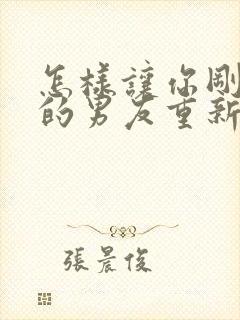 怎樣讓你剛
的男友重新
張晨俊